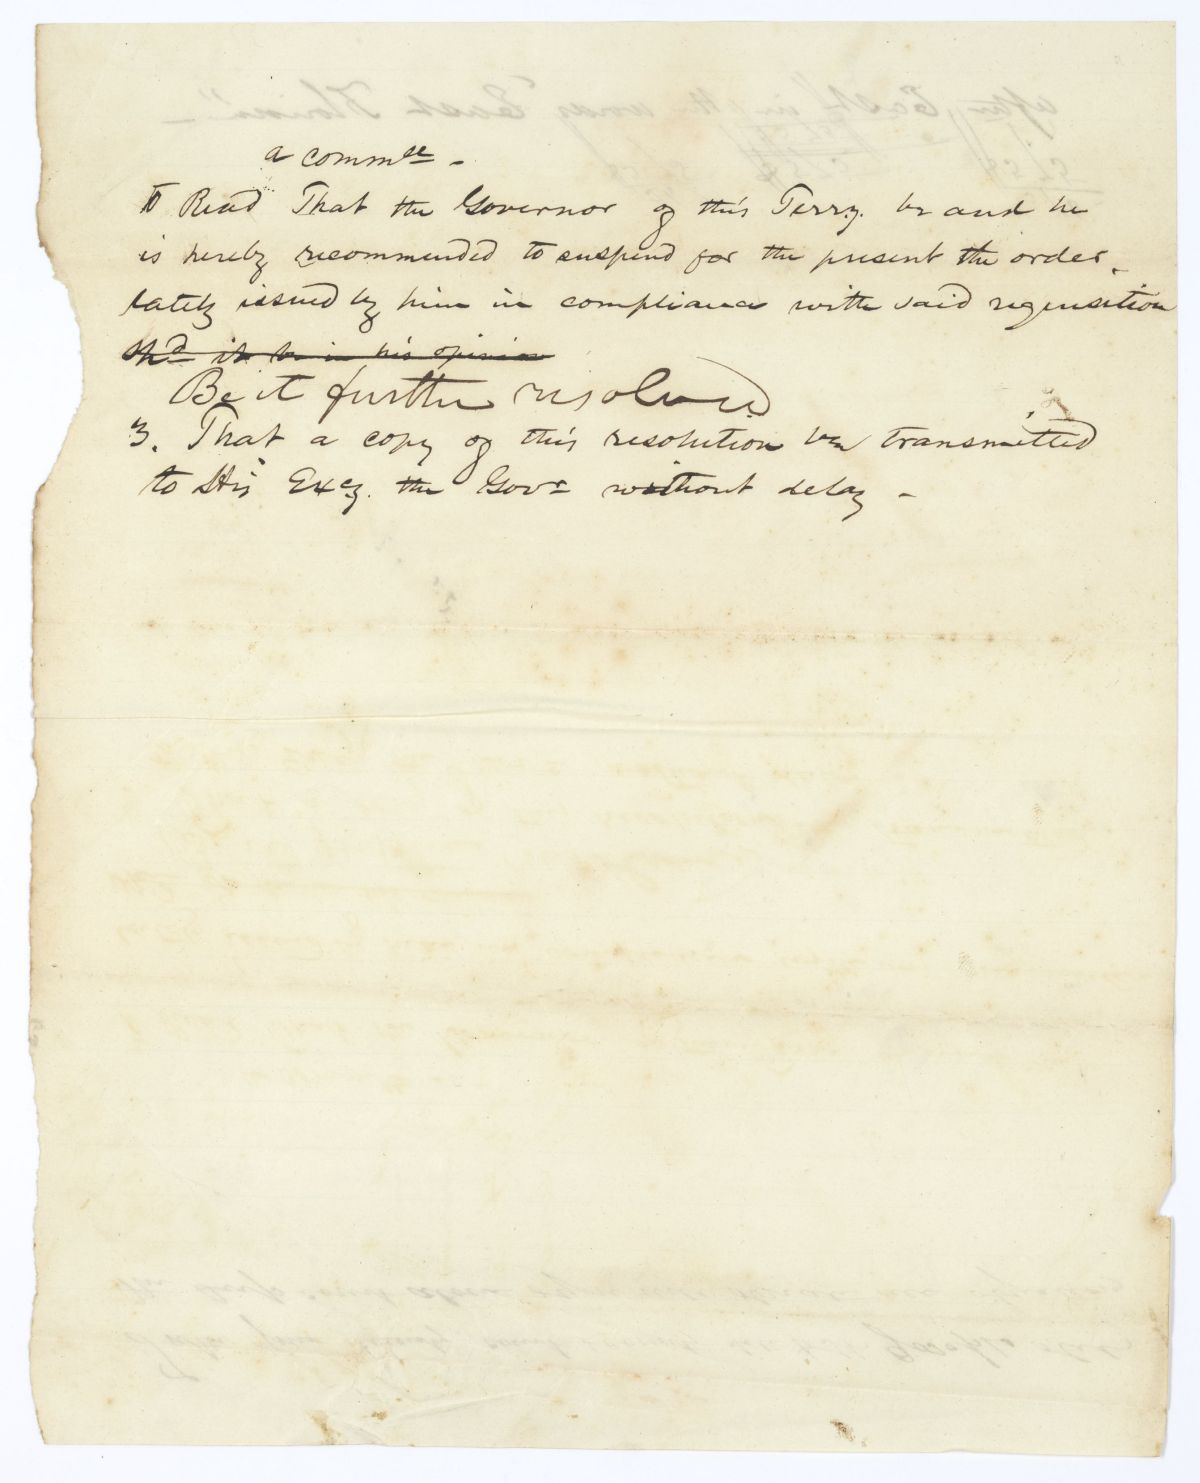 a commee -
Read That the Governor of this Terry. be and he
is hereby recommended to suspend for the present the order
lately issued by him in compliance with said requisition
it be in his opinion
Be it further resolved
3. That a copy of this resolution be transmitted
to His Excy. the Govr without delay -